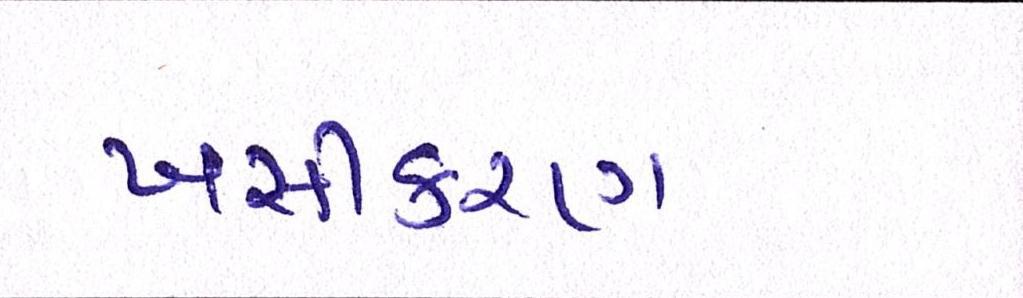 ખસીકરણ